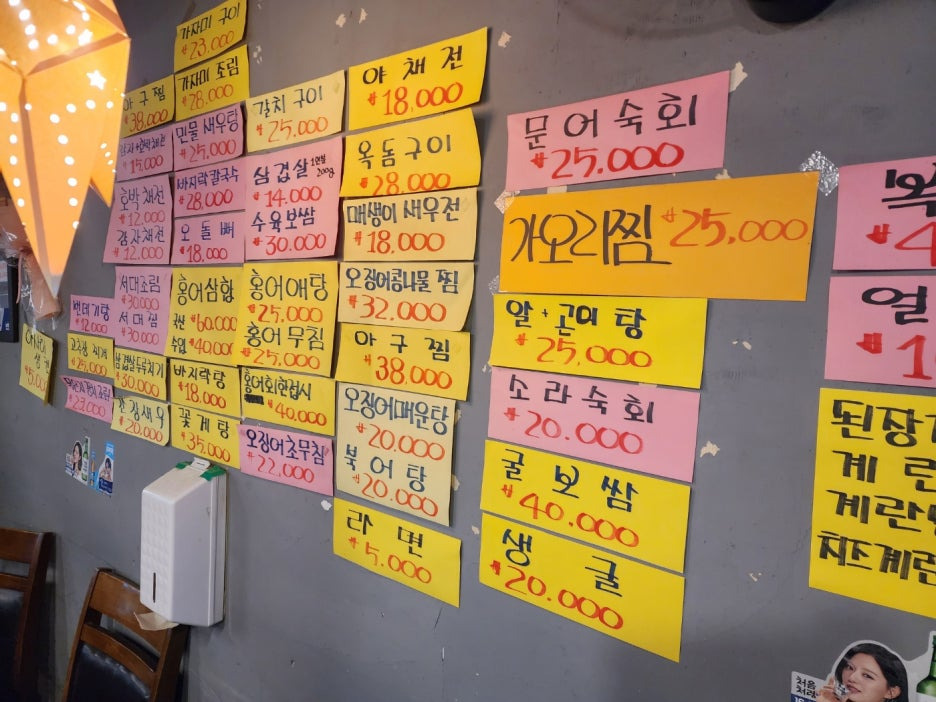 가자미 구이
₩23.000
가자미 조림
₩28.000
아구찜
38,000
민물 새우탕
₩25.000
₩15,000
갈치 구이
₩25.000
야채전
₩18,000
호박 채전
₩12.000
감자채전
₩12.000
바지락칼국수
₩28,000
오돌뼈
₩18.000
삼겹살 1인분 200g
₩14.000
수육보쌈
₩30.000
옥돔구이
₩28.000
매생이 새우전
₩18.000
번데기탕
₩12,000
서대조림
₩30.000
서대찜
₩30.000
홍어삼합
국산 ₩60.000
수입 ₩40000
홍어애탕
₩25.000
홍어 무침
₩25.000
오징어콩나물 찜
₩32.000
아구찜
₩38.000
생
₩5.000
고추장 찌개
₩25,000
삼겹살두루치기
₩30.000
바지락탕
₩18.000
홍어회한접시
₩40.000
₩23,000
간장새우
₩20.000
꽃게탕
₩35.000
오징어초무침
₩22.000
오징어매운탕
₩20.000
북어탕
₩20.000
라면
₩5.000
문어숙회
₩25.000
가오리찜 ₩25,000
알+곤이탕
₩25.000
소라숙회
₩20.000
굴보쌈
₩40.000
생굴
₩20.000
₩4
열
₩1
된장
계란
계란
치즈계란
처음
처럼